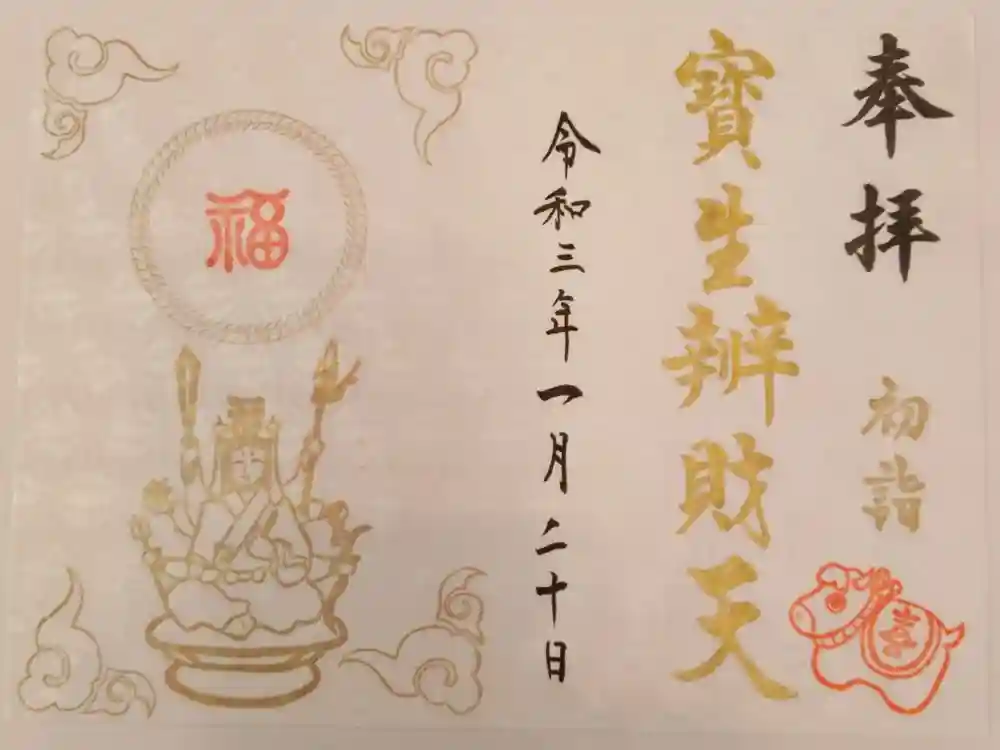 奉拝
初詣
喜
寶生辨財天
令和三年一月二十日
福